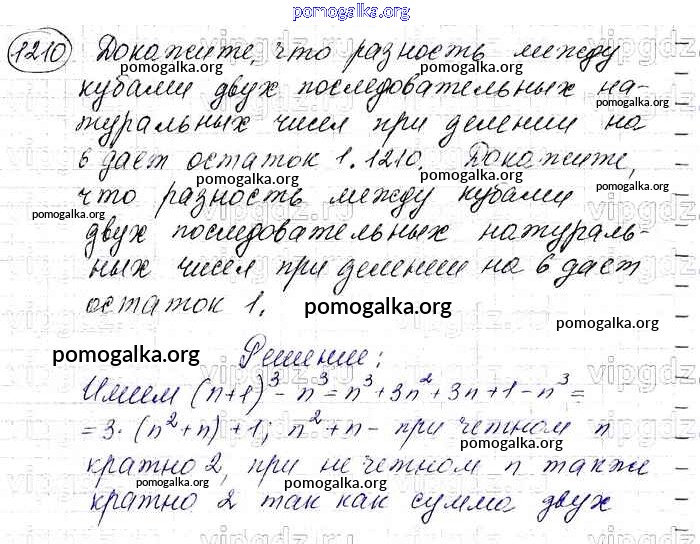 pomogalka.org
1210 Докажите, что разность между
pomogalka.org pomogalka.org
кубами двух последовательных на-
туральных чисел при делении на
pomogalka.org pomogalka.org
6 дает остаток 1. 1210. Докажите,
что разность между кубами
pomogalka.org pomogalka.org
двух последовательных натураль-
ных чисел при делении на 6 дает
остаток 1. pomogalka.org
pomogalka.org
pomogalka.org Решение:
Имеем (n+1)³ - n³ = n³ + 3n² + 3n + 1 - n³ =
= 3 · (n² + n) + 1; n² + n - при четном n
pomogalka.org
кратно 2, при не четном n также
pomogalka.org pomogalka.org
кратно 2 так как сумма двух